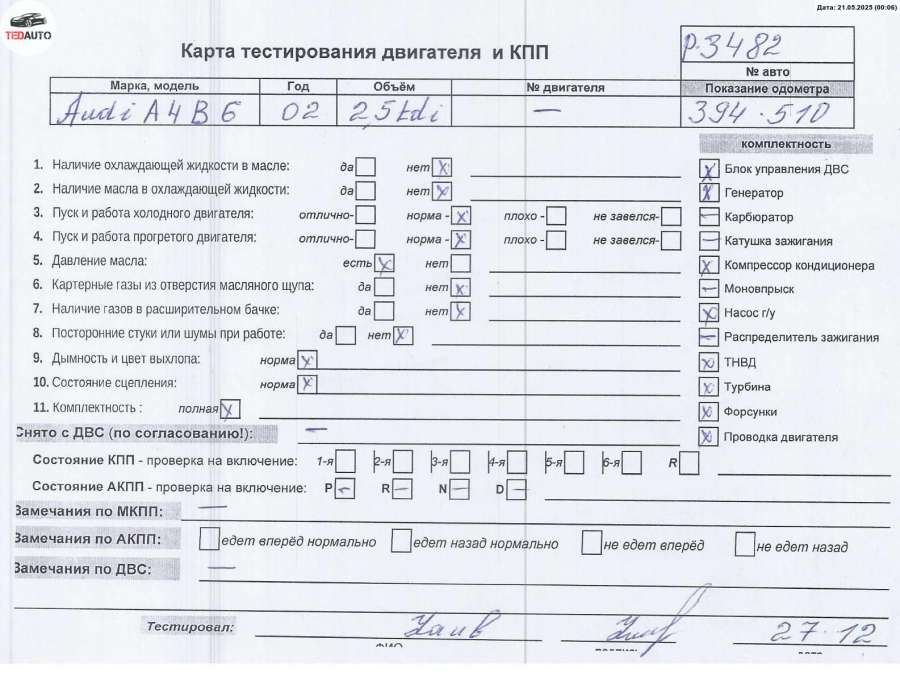 Дата: 21.05.2025 (00:06)
TEDAUTO
Карта тестирования двигателя и КПП
р.3482
№ авто
Марка, модель Год Объём № двигателя Показание одометра
Audi A4 B6 02 2,5 tdi — 394.510
комплектность
1. Наличие охлаждающей жидкости в масле: да нет x
Блок управления ДВС
2. Наличие масла в охлаждающей жидкости: да нет x
Генератор
3. Пуск и работа холодного двигателя: отлично- норма - x плохо - не завелся-
Карбюратор
4. Пуск и работа прогретого двигателя: отлично- норма - x плохо - не завелся-
Катушка зажигания
5. Давление масла: есть x нет
Компрессор кондиционера
6. Картерные газы из отверстия масляного щупа: да нет x
Моновпрыск
7. Наличие газов в расширительном бачке: да нет x
Насос г/у
8. Посторонние стуки или шумы при работе: да нет x
Распределитель зажигания
9. Дымность и цвет выхлопа: норма x
ТНВД
10. Состояние сцепления: норма x
Турбина
11. Комплектность : полная x
Форсунки
Снято с ДВС (по согласованию!): —
Проводка двигателя
Состояние КПП - проверка на включение: 1-я 2-я 3-я 4-я 5-я 6-я R
Состояние АКПП - проверка на включение: P — R — N — D —
Замечания по МКПП: —
Замечания по АКПП: едет вперёд нормально едет назад нормально не едет вперёд не едет назад
Замечания по ДВС: —
Тестировал: 27.12